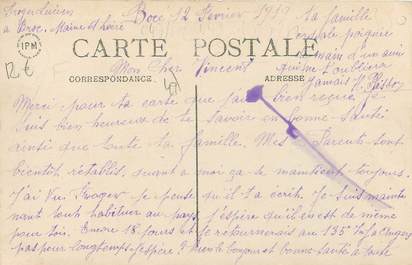 Broc, 12 Février 1919
à Broc, Maine et Loire
IPM
CARTE POSTALE
CORRESPONDANCE
ADRESSE
12 €
Mon Cher Vincent
ta famille
poignée
main d'un ami
qui ne t'oubliera
jamais
Merci pour ta carte que j'ai bien reçue
suis bien heureux de te savoir en bonne santé
ainsi que toute ta famille. Mes Parents sont
bientôt rétablis, quant à moi ça se maintient toujours.
J'ai vu Froger je pense qu'il t'a écrit. Je suis mainte
nant tout habituer au pays j'espère qu'il en est de même
pour toi. Encore 18 jours et je retournerais au 135e
pas pour longtemps j'espère bonjour et bonne santé à toute